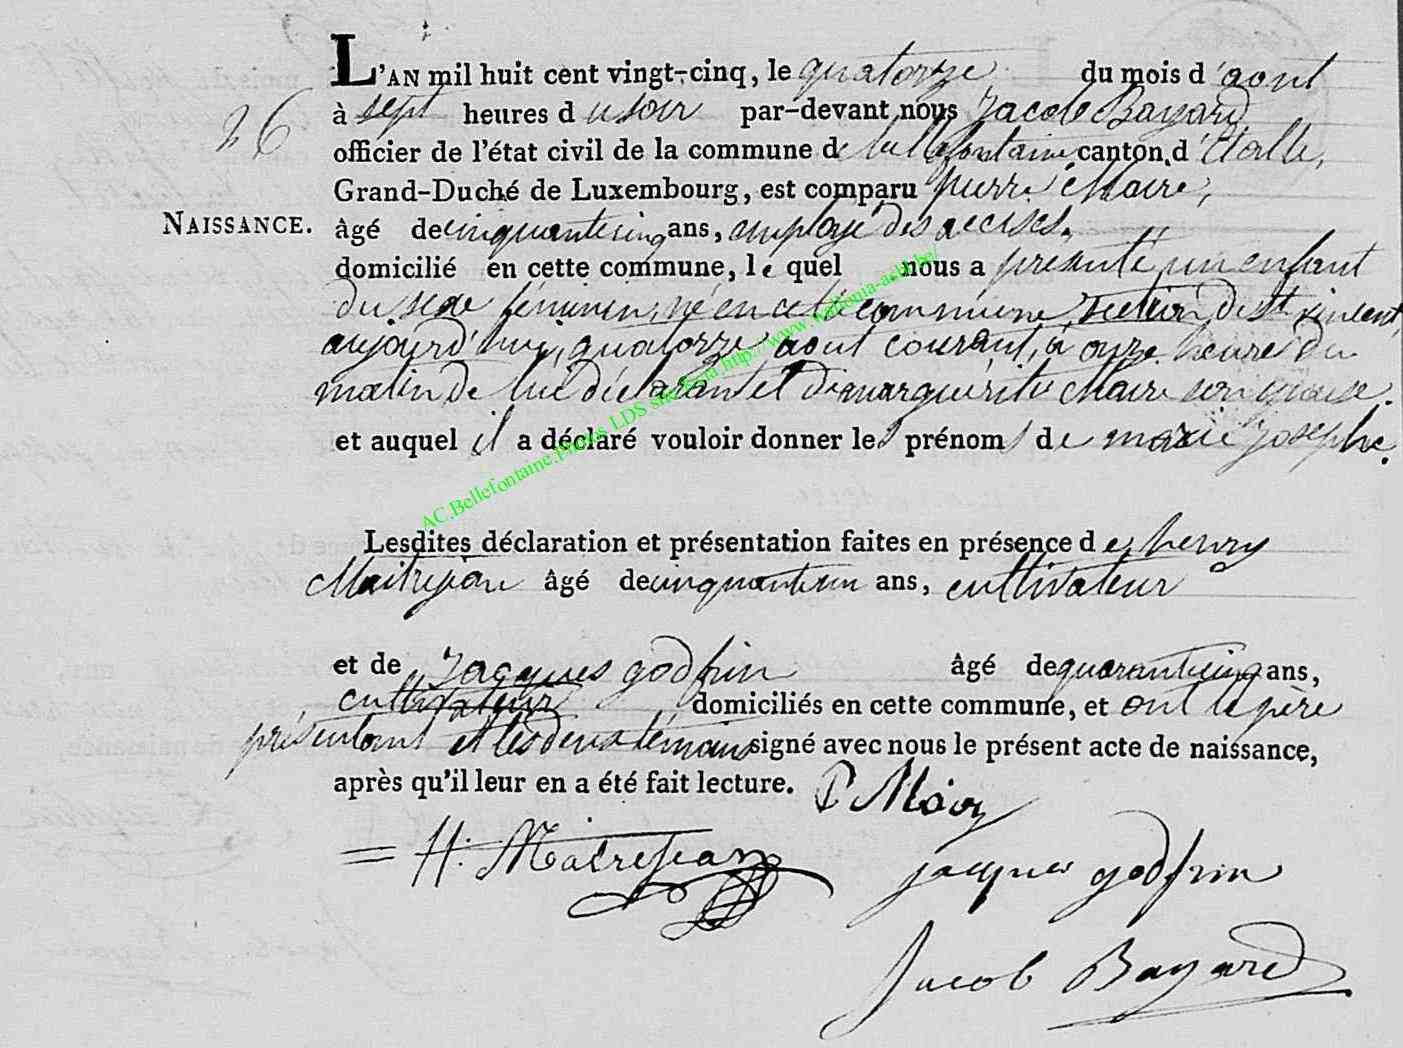 L'AN mil huit cent vingt-cinq, le quatorze du mois d'aout
26
à sept heures du soir par-devant nous Jacob Bayard
officier de l'état civil de la commune de bellefontaine canton d'Etalle,
Grand-Duché de Luxembourg, est comparu pierre Maire,
NAISSANCE.
âgé de cinquantecinq ans, employé des accises,
domicilié en cette commune, le quel nous a présenté un enfant
du sexe féminin, né en cette commune section de st vincent
aujourd'hui, quatorze aout courant, à onze heures du
matin de lui déclarant et de marguérite Maire son épouse.
et auquel il a déclaré vouloir donner les prénoms de marie josephe.
AC.Bellefontaine.photos LDS site http://www.wallonia-asbl.be/
Lesdites déclaration et présentation faites en présence de henry
Maitrejean âgé de cinquanteun ans, cultivateur
et de Jacques godfrin âgé de quarantecinq ans,
cultivateur domiciliés en cette commune, et ont le père
présentant et les deux témoins signé avec nous le présent acte de naissance,
après qu'il leur en a été fait lecture. P Mair
H. Maitrejean
jacques godfrin
Jacob Bayard